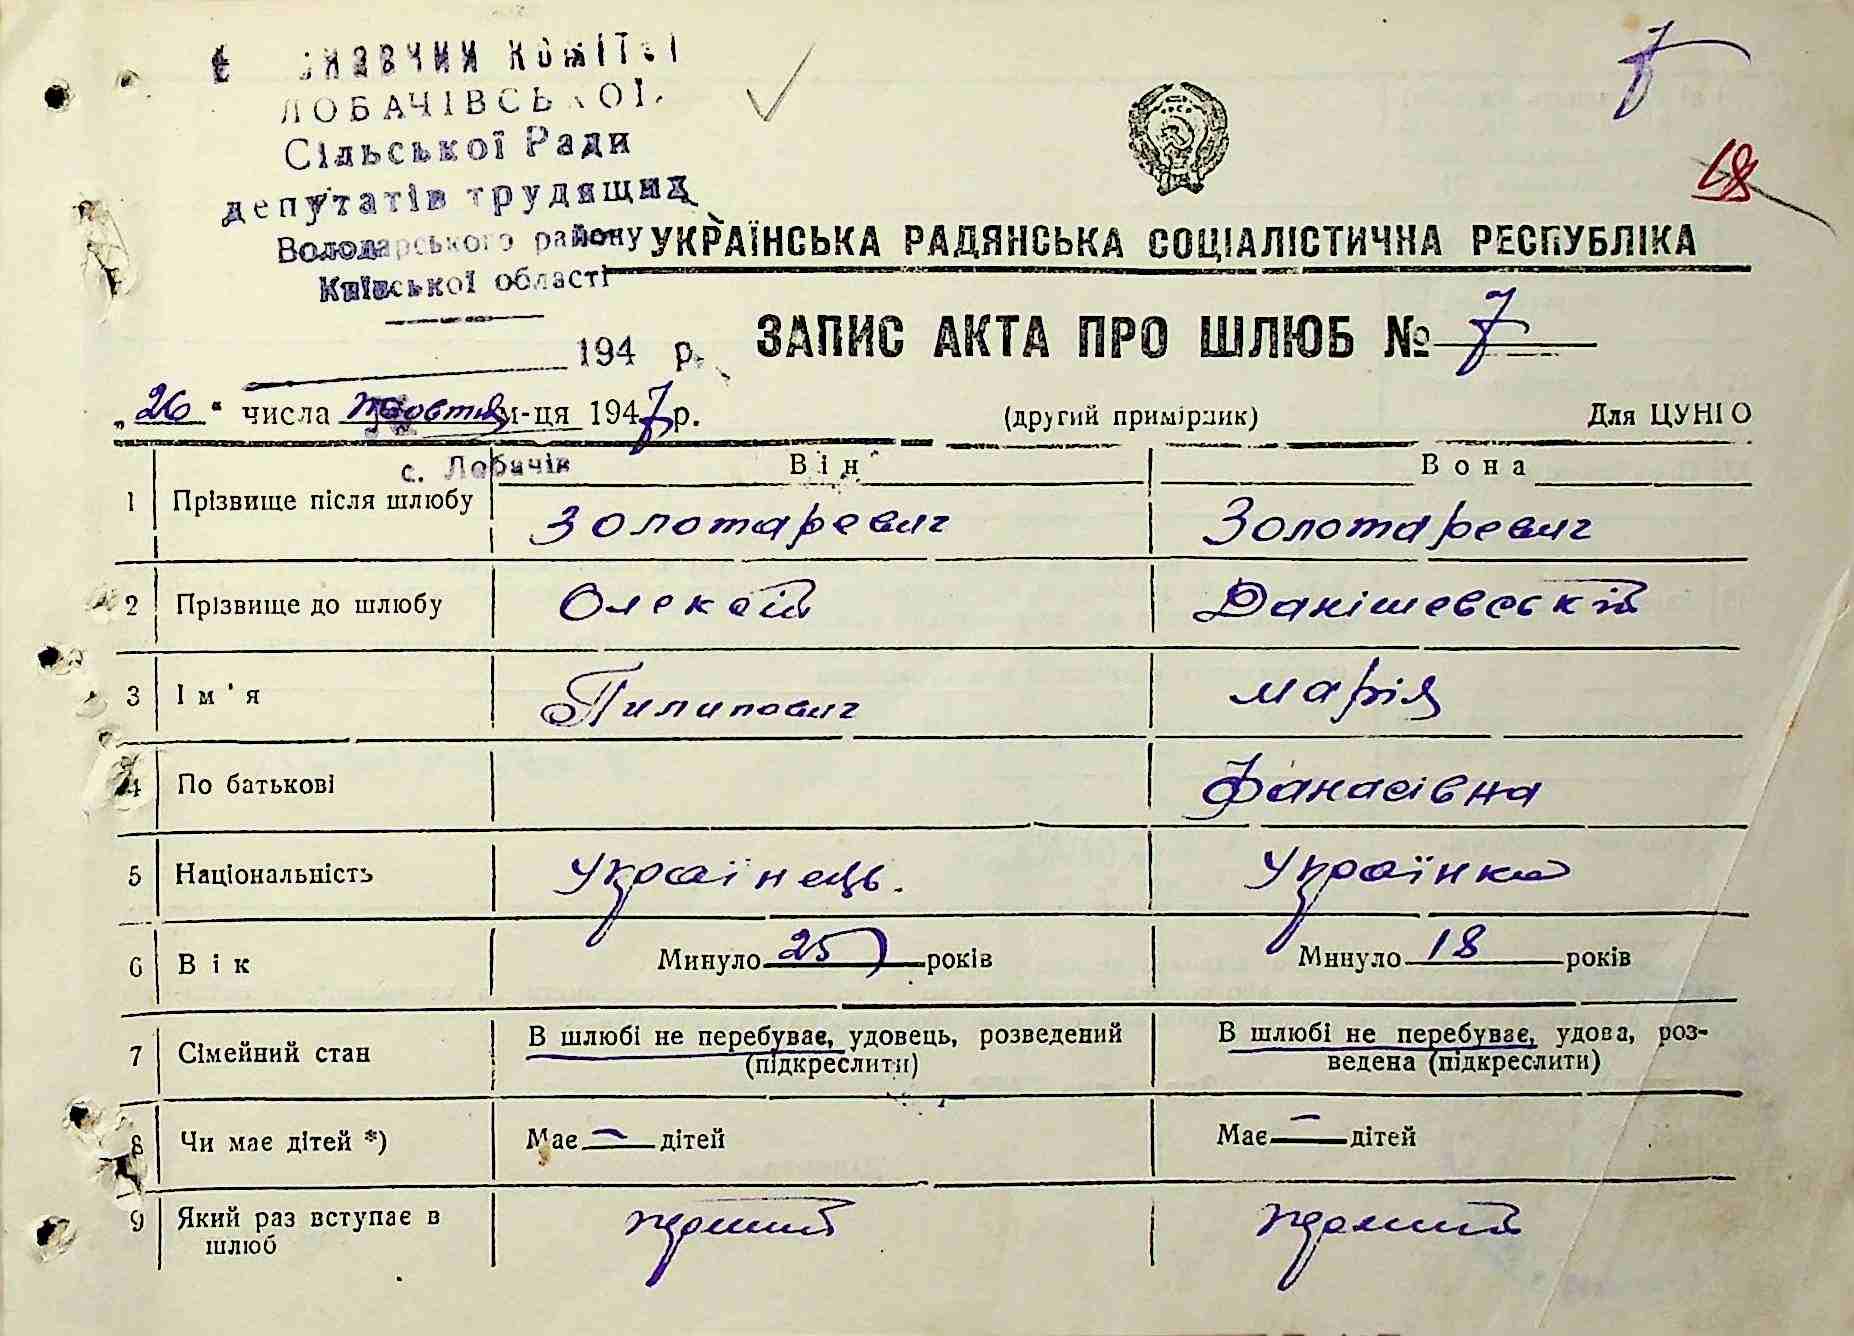 КОМІТЕТ
ЛОБАЧІВСЬКОЇ
Сільської Ради
депутатів трудящих
Володарського району
Київської області
7
18
УКРАЇНСЬКА РАДЯНСЬКА СОЦІАЛІСТИЧНА РЕСПУБЛІКА
194 р.
ЗАПИС АКТА ПРО ШЛЮБ № 7
„26“ числа жовтня м-ця 1947 р. (другий примірник) Для ЦУНГО
с. Лобачів
Він Вона
1 Прізвище після шлюбу Золотаревич Золотаревич
2 Прізвище до шлюбу Олексій Данішевській
3 Ім'я Пилипович Марія
4 По батькові Фанасівна
5 Національність Українець. Українка
6 Вік Минуло 25 років Минуло 18 років
7 Сімейний стан В шлюбі не перебуває, удовець, розведений (підкреслити) В шлюбі не перебуває, удова, роз-
ведена (підкреслити)
8 Чи має дітей *) Має — дітей Має — дітей
9 Який раз вступає в
шлюб